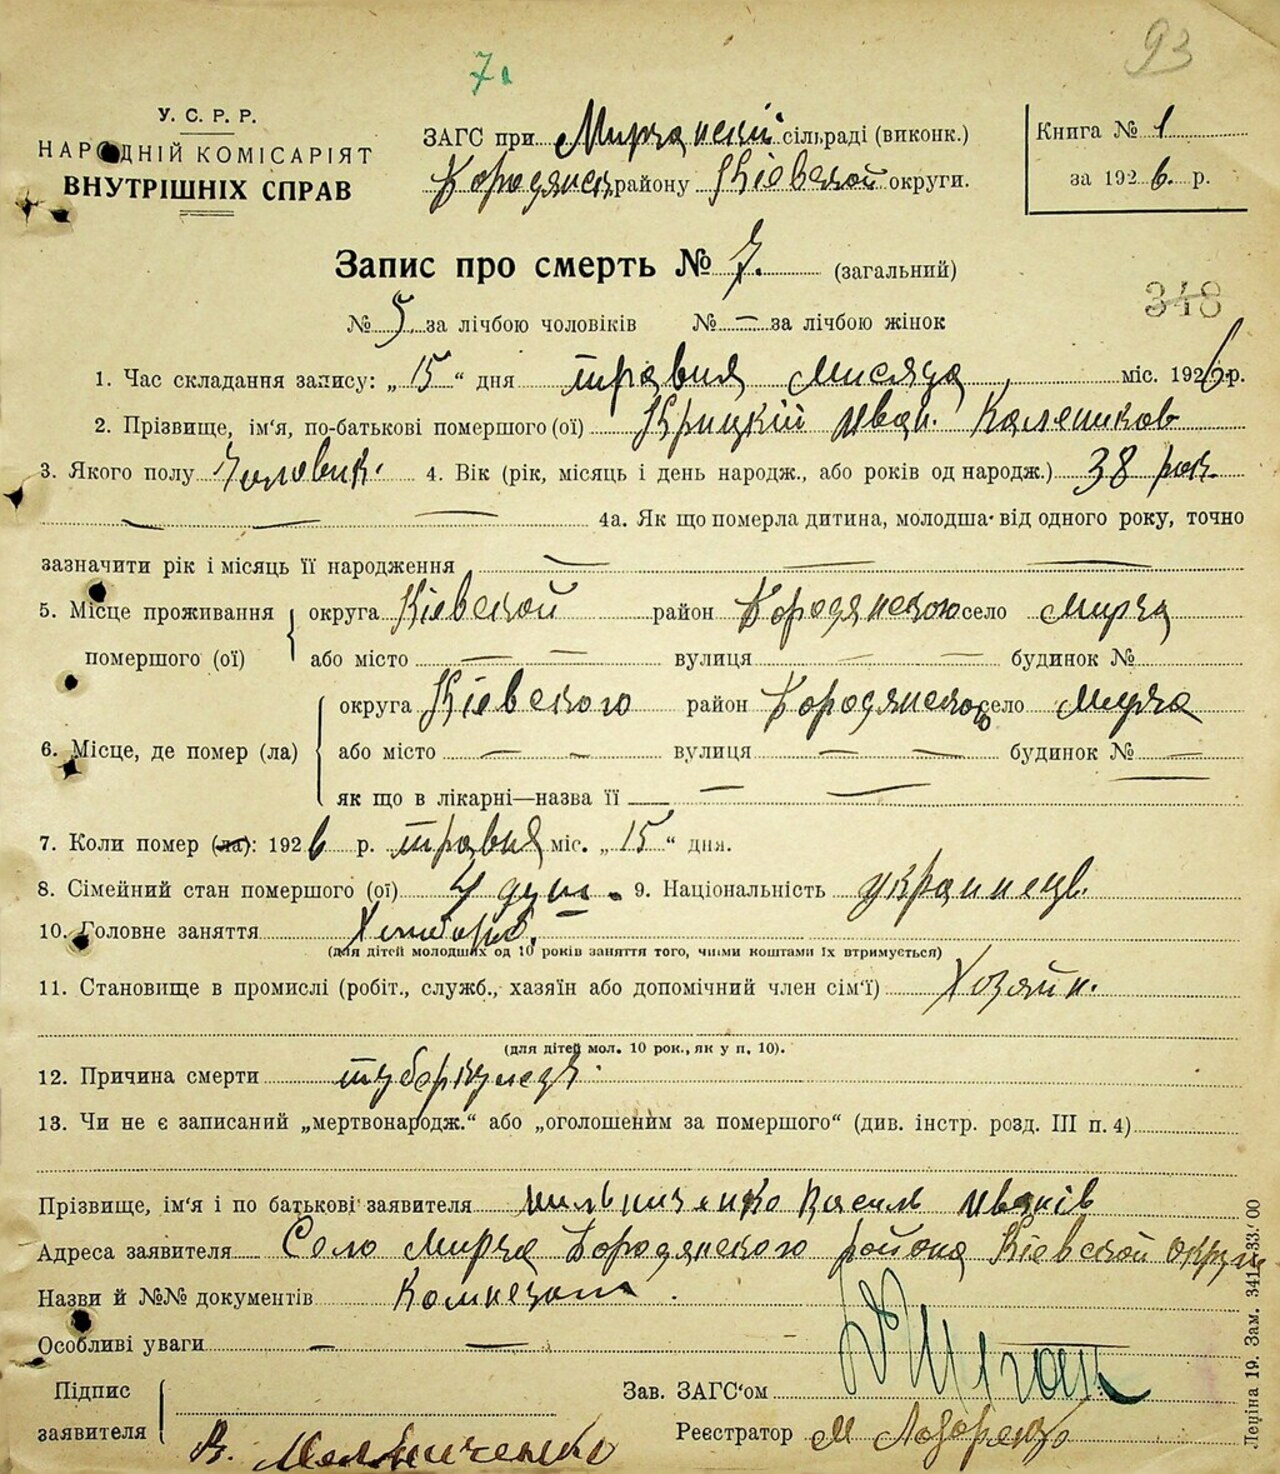 93
7.
У. С. Р. Р.
НАРОДНІЙ КОМІСАРІЯТ
ВНУТРІШНІХ СПРАВ
ЗАГС при Мирчанскій сільраді (виконк.)
Бородянск району Кіевской округи.
Книга № 1
за 1926. р.
Запис про смерть № 7. (загальний)
348
№ 5 за лічбою чоловіків № — за лічбою жінок
1. Час складання запису: „15“ дня травня мисяца міс. 1926 р.
2. Прізвище, ім‘я, по-батькові помершого (ої) Крицкій Иван. Калеников
3. Якого полу Чоловик. 4. Вік (рік, місяць і день народж., або років од народж.) 38 рок
— — — 4а. Як що померла дитина, молодша від одного року, точно
зазначити рік і місяць її народження — — —
5. Місце проживання помершого (ої) округа Кіевской район Бородянского село Мирча
або місто — — вулиця — — будинок №
6. Місце, де помер (ла) округа Кіевского район Бородянского село Мирча
або місто — — вулиця — — будинок № —
як що в лікарні—назва її — — —
7. Коли помер (ла): 1926 р. травня міс. „15“ дня.
8. Сімейний стан помершого (ої) 4 душ. 9. Національність украинець.
10. Головне заняття Хлибороб.
(для дітей молодших од 10 років заняття того, чиїми коштами їх втримується)
11. Становище в промислі (робіт., служб., хазяїн або допомічний член сім‘ї) Хозяйн.
(для дітей мол. 10 рок., як у п. 10).
12. Причина смерти туберкулез.
13. Чи не є записаний „мертвонародж.“ або „оголошеним за помершого“ (див. інстр. розд. III п. 4)
Прізвище, ім‘я і по батькові заявителя Василь Иванів
Адреса заявителя Село Мирча Бородянского района Кіевской округи
Назви й №№ документів
Особливі уваги — —
Підпис заявителя В. Мельниченко
Зав. ЗАГС‘ом
Реєстратор М
Леціна 19. Зам. 341. 33.000